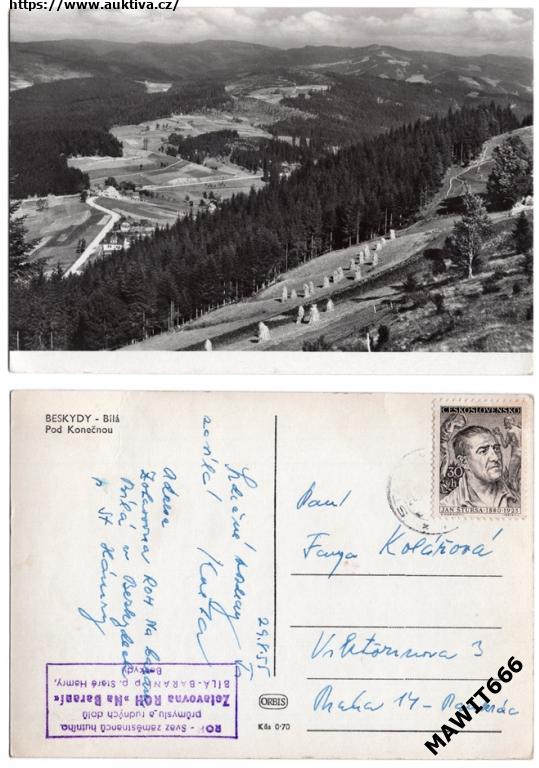 https://www.auktiva.cz/
BESKYDY - Bílá
Pod Konečnou
ČESKOSLOVENSKO
30
h
JAN ŠTURSA·1880-1925
Srdečné pozdravy
zasílá Karla
29.8.55
Adresa
Zotavovna ROH Na Baraní
Bílá v Beskydech
p. St. Hamry
Paní
Fanya Kolářová
Viktorinova 3
Praha 14-
ROH - Svaz zaměstnanců hutního
průmyslu a rudných dolů
Zotavovna ROH »Na Baraní«
BÍLÁ-BARANÍ, p. Staré Hamry,
Beskydy
ORBIS
Kčs 0·70
MAWIT666